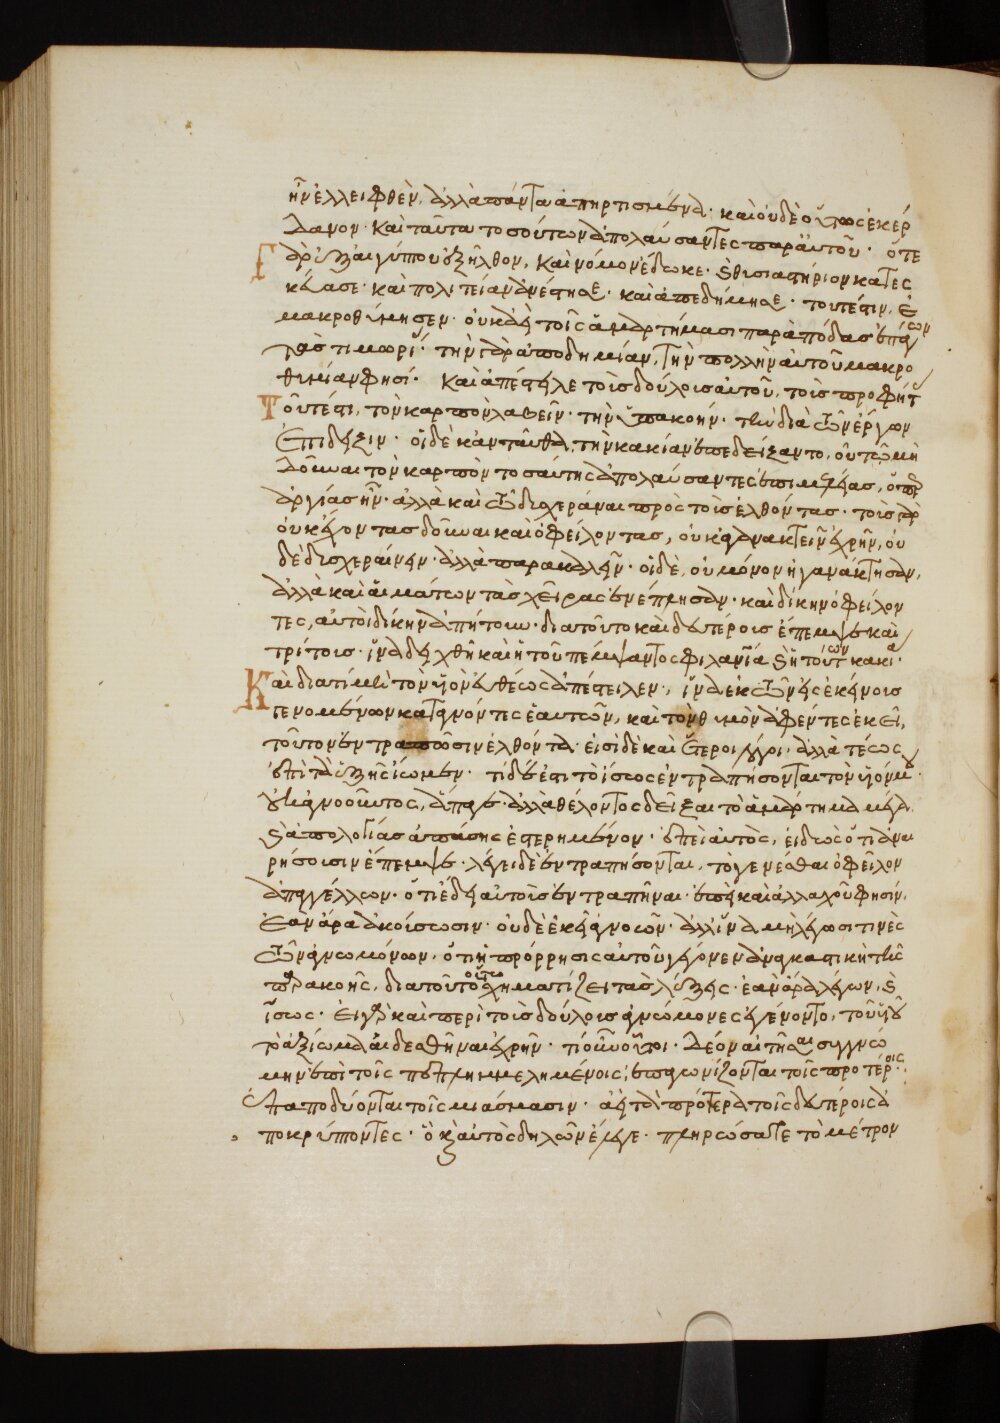 ἦν ἐλλειφθὲν, ἀλλὰ πάντα ἀπηρτισμένα· καὶ οὐδὲ οὕτως ἐκέρ
δανον· καὶ ταῦτα τοσούτων ἀπολαύσαντες παρ αὐτοῦ· ὅτε
γὰρ ἐξ αἰγύπτου ἐξῆλθον, καὶ νόμον ἔδωκε· καὶ θυσιαστήριον κατεσ
κεύασε· καὶ πολιτείαν ἀνέστησε· καὶ ἀπεδήμησε· τουτέστιν, ἐ
μακροθύμησεν· οὐκ ἀεὶ τοῖς ἁμαρτήμασι παρὰ πόδας ἐπάγων
τὰς τιμωρίας· τὴν γὰρ ἀποδημίαν, τὴν πολλὴν αὐτοῦ μακρο
θυμίαν φησί· καὶ ἀπέστειλε τοὺς δούλους αὐτοῦ, τοὺς προφήτας
τουτέστι, τὸν καρπὸν λαβεῖν· τὴν ὑπακοήν· τὴν διὰ τῶν ἔργων
ἐπίδειξιν· οἱ δὲ κἀνταῦθα, τὴν κακίαν ἐπεδείξαντο, οὐ τῷ μὴ
δοῦναι τὸν καρπὸν τοσαύτης ἀπολαύσαντες ἐπιμελείας, ὅπερ
ἀργίας ἦν· ἀλλὰ καὶ τῷ δυσχεράναι πρὸς τοὺς ἐλθόντας· τοὺς γὰρ
οὐκ ἔχοντας δοῦναι καὶ ὀφείλοντας, οὐκ ἀγανακτεῖν ἐχρῆν, οὐ
δὲ δυσχεραίνειν· ἀλλὰ παρακαλεῖν· οἱ δὲ, οὐ μόνον ἠγανάκτησαν,
ἀλλὰ καὶ αἱμάτων τὰς χεῖρας ἐνέπλησαν· καὶ δίκην ὀφείλον
τες, αὐτοὶ δίκην ἀπῄτουν· διὰ τοῦτο καὶ δευτέρους ἔπεμψε καὶ
τρίτους· ἵνα δειχθῇ καὶ ἡ τοῦ πέμψαντος φιλανθρωπία καὶ ἡ τούτων κακία·
Καὶ διατί μὴ τὸν υἱὸν εὐθέως ἀπέστειλεν, ἵνα ἐκ τῶν εἰς ἐκείνους
γενομένων καταγνόντες ἑαυτῶν, καὶ τὸν θυμὸν ἀφέντες ἐκεῖ,
τοῦτον ἐντραπῶσιν ἐλθόντα· εἰσὶ δὲ καὶ ἕτεροι λόγοι· ἀλλὰ τέως
ἐπὶ τὰ ἑξῆς ἴωμεν· τί δέ ἐστι τὸ ἴσως ἐντραπήσονται τὸν υἱόν μου·
οὐκ ἀγνοοῦντος, ἄπαγε· ἀλλὰ θέλοντος δεῖξαι τὸ ἁμάρτημα μέγα,
καὶ ἀπολογίας ἁπάσης ἐστερημένον· ἐπεὶ αὐτὸς, εἰδὼς ὅτι ἀναι
ρήσουσιν ἔπεμψε· λέγει δὲ ἐντραπήσονται, τὸ γενέσθαι ὀφεῖλον
ἀπαγέλλων· ὅτι ἔδει αὐτοὺς ἐντραπῆναι· ἐπεὶ καὶ ἀλλαχοῦ φησίν,
ἐὰν ἄρα ἀκούσωσιν· οὐδὲ ἐκεῖ ἀγνοῶν· ἀλλ' ἵνα μὴ λέγωσί τινες
τῶν ἀγνωμόνων, ὅτι ἡ πρόρρησις αὐτοῦ γέγονεν ἀναγκαστικὴ τῆς
παρακοῆς, διὰ τοῦτο οὕτω σχηματίζει τὰς λέξεις· ἐὰν ἄρα λέγων, καὶ
ἴσως· εἰ γὰρ καὶ περὶ τοὺς δούλους ἀγνώμονες ἐγένοντο, τοῦ υἱοῦ
τὸ ἀξίωμα αἰδεσθῆναι ἐχρῆν· τί οὖν οὗτοι· δέον αἰτῆσαι συγγνώ
μην ἐπὶ τοῖς πεπλημμελημένοις, ἐπαγωνίζονται τοῖς προτέροις·
ἐπαποδύονται τοῖς μιάσμασιν· ἀεὶ τὰ πρότερα τοῖς δευτέροις ἀ
ποκρύπτοντες· ὃ καὶ αὐτὸς δηλῶν ἔλεγε· πληρώσατε τὸ μέτρον